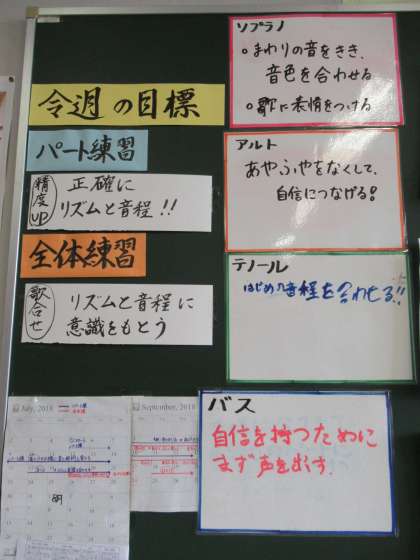 今週の目標
パート練習
精度UP
正確に
リズムと音程!!
全体練習
歌合せ
リズムと音程に
意識をもとう
ソプラノ
・まわりの音をきき、
音色を合わせる
・歌に表情をつける
アルト
あやふやをなくして、
自信につなげる!
テノール
はじめの音程を合わせる!!
バス
自信を持つために
まず声を出す
July, 2018
September, 2018